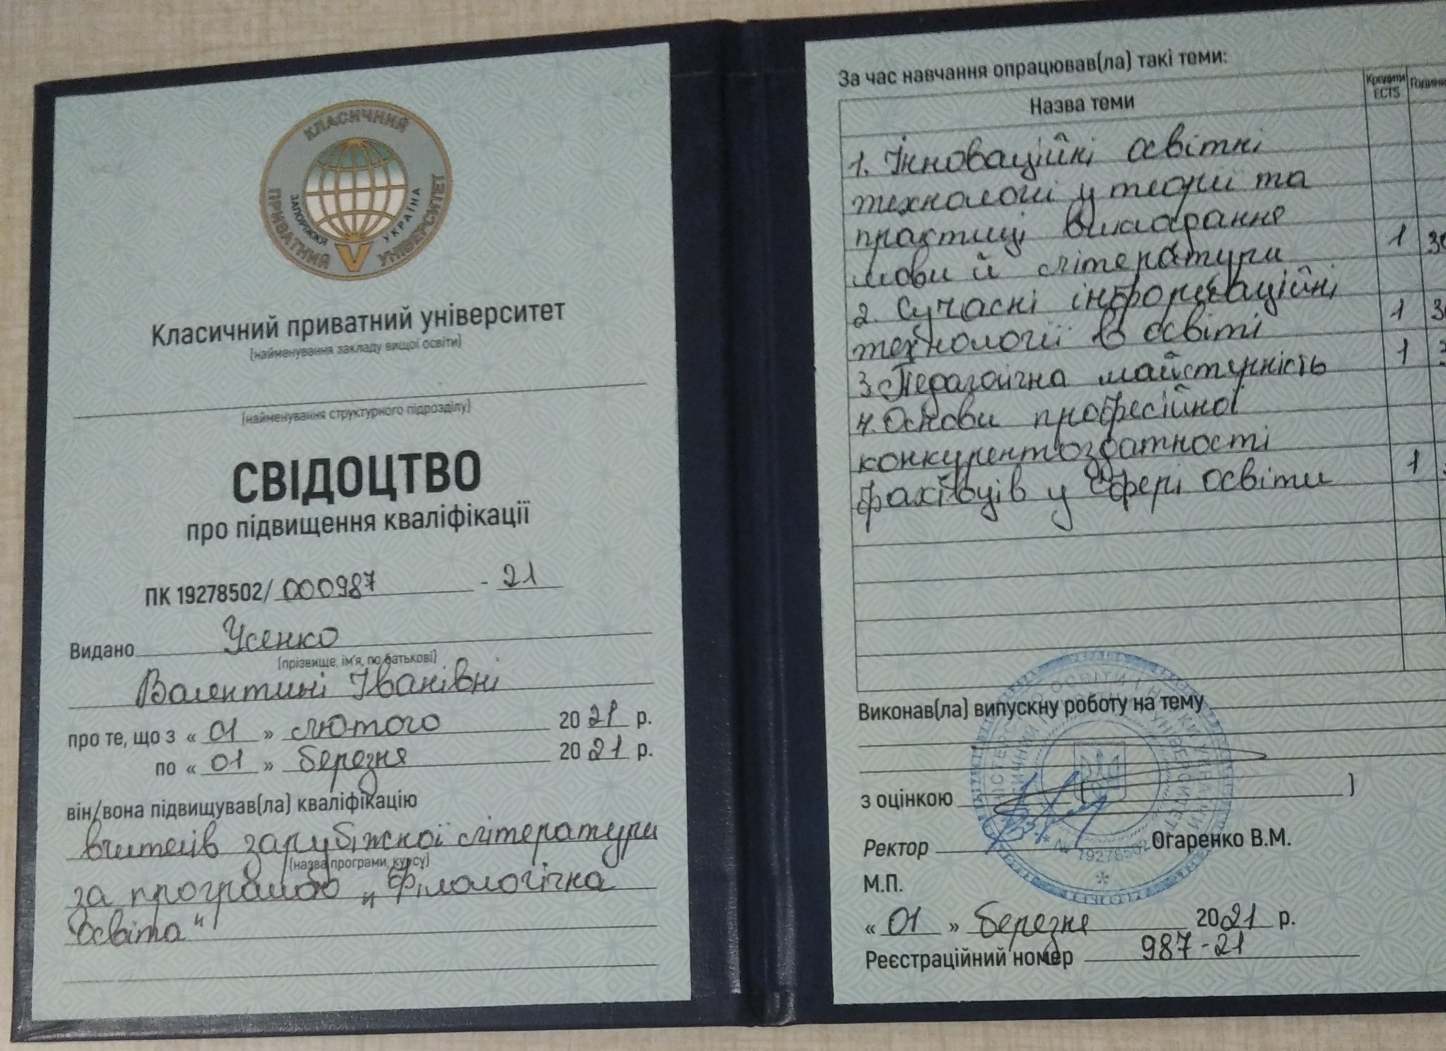 КЛАСИЧНИЙ
ПРИВАТНИЙ
УНІВЕРСИТЕТ
ЗАПОРІЖЖЯ
УКРАЇНА
Класичний приватний університет
(найменування закладу вищої освіти)
(найменування структурного підрозділу)
СВІДОЦТВО
про підвищення кваліфікації
ПК 19278502/ 000987 - 21
Видано Усенко
(прізвище, ім'я, по батькові)
Валентині Іванівні
про те, що з « 01 » лютого 2021 р.
по « 01 » березня 2021 р.
він/вона підвищував(ла) кваліфікацію
вчителів зарубіжної літератури
(назва програми, курсу)
за програмою „Філологічна
освіта"
За час навчання опрацював(ла) такі теми:
Назва теми
Кредити
ECTS
Години
1. Інноваційні освітні
технології у теорії та
практиці викладання
мови й літератури 1 30
2. Сучасні інформаційні
технології в освіті 1 3
3. Педагогічна майстерність 1
4. Основи професійної
конкурентоздатності
фахівців у сфері освіти 1
Виконав(ла) випускну роботу на тему
з оцінкою )
Ректор Огаренко В.М.
М.П.
№ 19278502
« 01 » березня 2021 р.
Реєстраційний номер 987-21